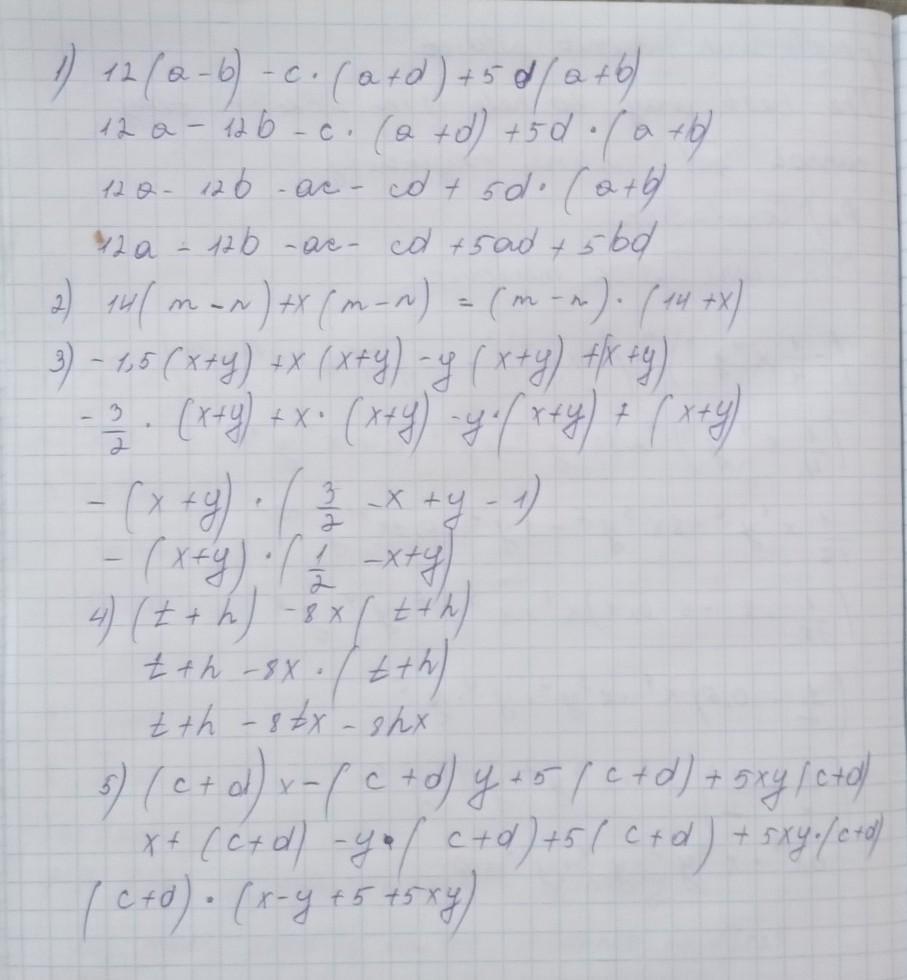 1) 12(a-b) -c·(a+d)+5d(a+b)
12a - 12b - c·(a+d)+5d·(a+b)
12a- 12b -ac- cd+ 5d·(a+b)
12a - 12b -ac- cd +5ad + 5bd
2) 14(m-n)+x(m-n) = (m-n)·(14+x)
3) -1,5(x+y) +x(x+y) -y(x+y) +(x+y)
-3/2·(x+y)+x·(x+y) -y·(x+y) + (x+y)
-(x+y)·(3/2 -x +y -1)
-(x+y)·(1/2 -x+y)
4) (t+h) -8x(t+h)
t+h -8x·(t+h)
t+h -8tx -8hx
5) (c+d)x-(c+d)y+5(c+d)+5xy(c+d)
x+(c+d) -y·(c+d)+5(c+d)+5xy·(c+d)
(c+d)·(x-y+5+5xy)